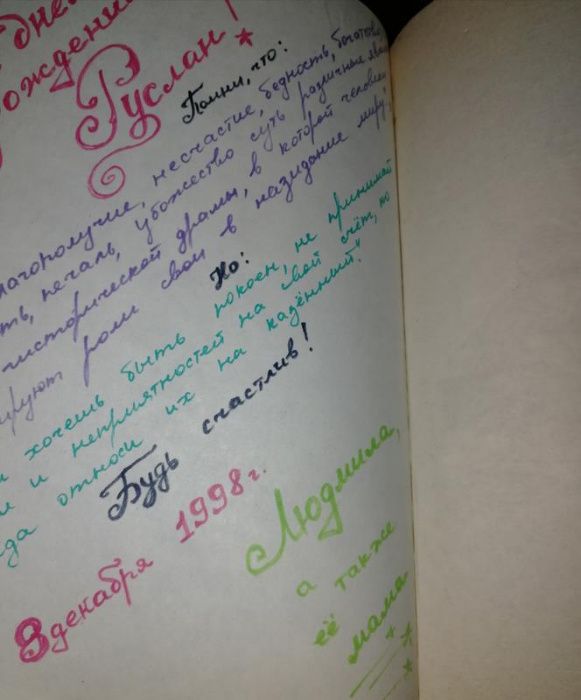 днём
рождения
Руслан!
Помни, что:
лагополучие, несчастие, бедность, богатство
ть, печаль, убожество суть различные явл
гисторической драмы, в которой человеки
ируют роли свои в назидание миру;
Но:
хочешь быть покоен, не принимай
и неприятностей на свой счёт, но
да относи их на казённый."
Будь счастлив!
8 декабря 1998 г.
Людмила,
а также
её
мама